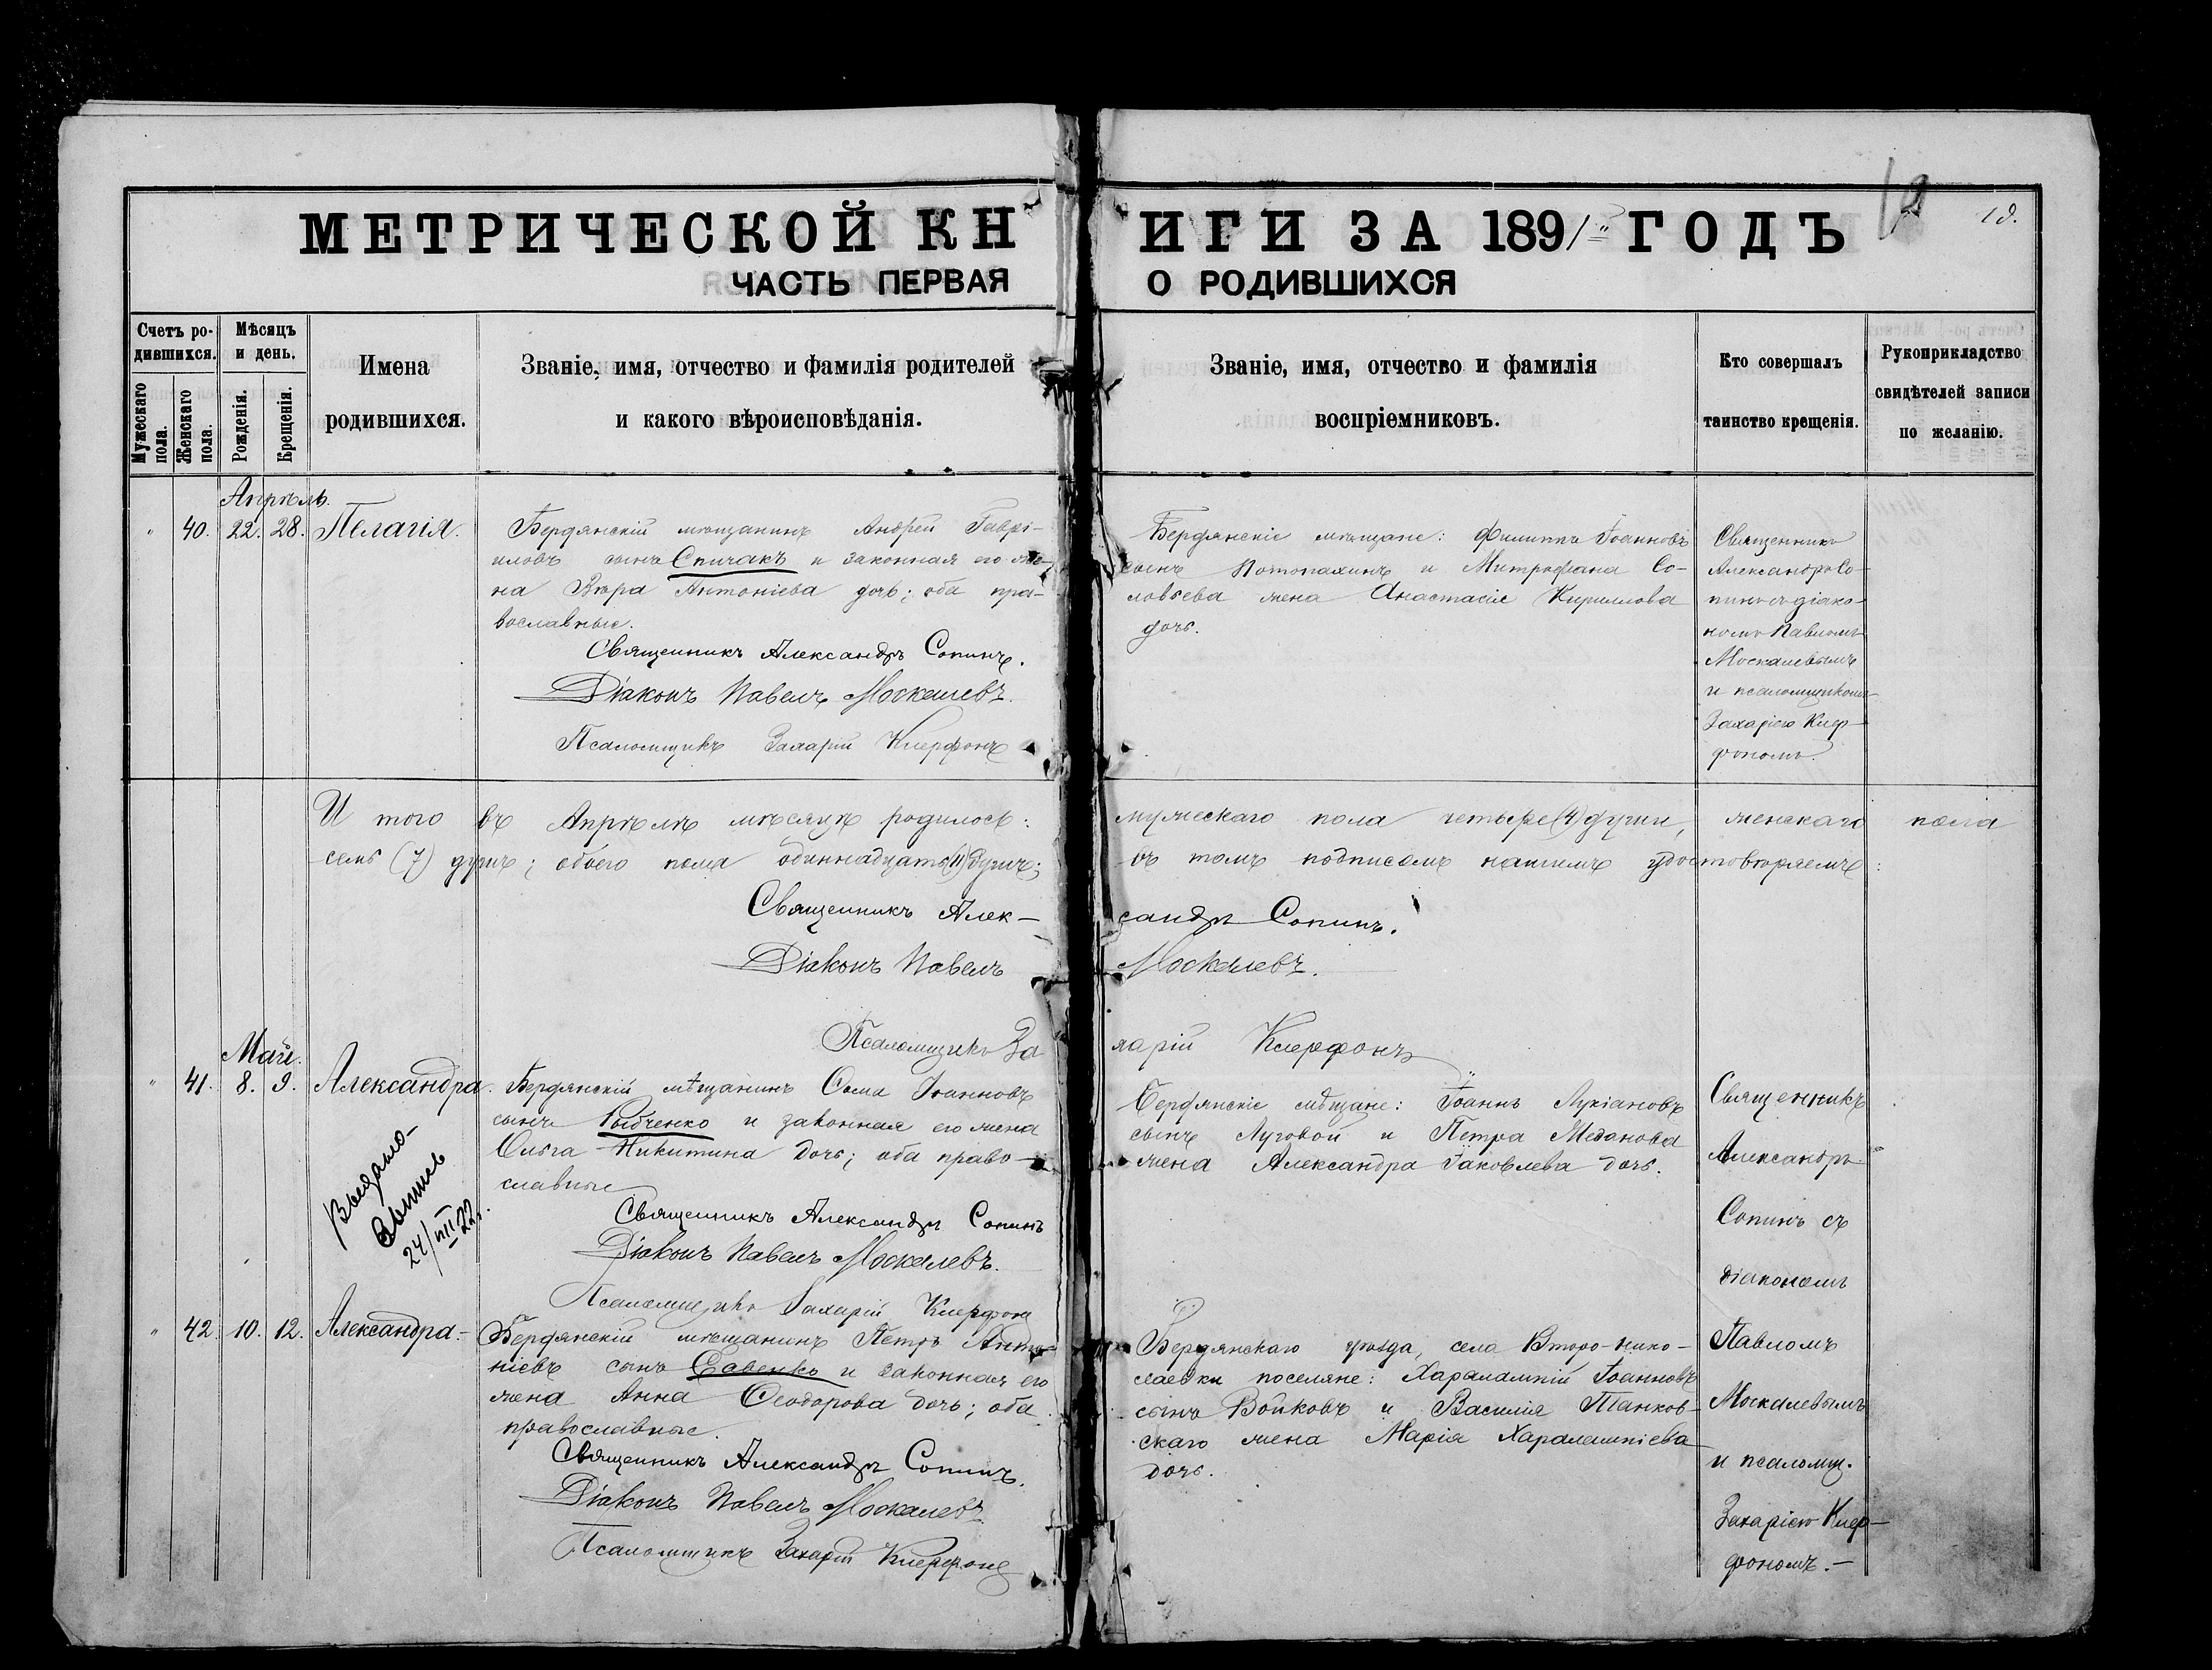 МЕТРИЧЕСКОЙ КНИГИ ЗА 1891 ГОДЪ
12
ЧАСТЬ ПЕРВАЯ О РОДИВШИХСЯ
Счетъ родившихся.
Мужескаго пола.
Женскаго пола.
Мѣсяцъ и день.
Рожденія.
Крещенія.
Имена
родившихся.
Званіе, имя, отчество и фамилія родителей
и какого вѣроисповѣданія.
Званіе, имя, отчество и фамилія
воспріемниковъ.
Кто совершалъ
таинство крещенія.
Рукоприкладство
свидѣтелей записи
по желанію.
Апрѣль.
" 40. 22. 28. Пелагія.
Бердянскій мѣщанинъ Андрей Гаврі-
иловъ сынъ Спичакъ и законная его же-
на Вѣра Антоніева дочь; оба пра-
вославные.
Священникъ Александръ Сопинъ.
Діаконъ Павелъ Москалевъ.
Псаломщикъ Захарій Клерфонъ
Бердянскіе мѣщане: Филиппъ Іоанновъ
сынъ Потопахинъ и Митрофана Со-
ловьева жена Анастасія Кириллова
дочь.
Священникъ
Александръ Со-
пинъ съ діако-
номъ Павломъ
Москалевымъ
и псаломщикомъ
Захаріею Клер-
фономъ.
И того въ Апрѣлѣ мѣсяцѣ родилось: мужескаго пола четыре (4) души, женскаго пола
семь (7) душъ; обоего пола одиннадцать (11) душъ; въ томъ подписомъ нашимъ удостовѣряемъ:
Священникъ Александръ Сопинъ.
Діаконъ Павелъ Москалевъ.
Псаломщикъ Захарій Клерфонъ
Май.
" 41. 8. 9. Александра.
Выдано
24/VIII 22 г.
Бердянскій мѣщанинъ Ѳома Іоанновъ
сынъ Рыбченко и законная его жена
Ольга Никитина дочь; оба право-
славные
Священникъ Александръ Сопинъ
Діаконъ Павелъ Москалевъ.
Псаломщикъ Захарій Клерфонъ
Бердянскіе мѣщане: Іоаннъ Лукіановъ
сынъ Луговой и Петра Меданова
жена Александра Іаковлева дочь.
" 42. 10. 12. Александра.
Бердянскій мѣщанинъ Петръ Анто-
ніевъ сынъ Савенко и законная его
жена Анна Ѳеодорова дочь; оба
православные.
Священникъ Александръ Сопинъ.
Діаконъ Павелъ Москалевъ
Псаломщикъ Захарій Клерфонъ
Бердянскаго уѣзда, села Второ-Нико-
лаевки поселяне: Харалампій Іоанновъ
сынъ Войковъ и Василія Танков-
скаго жена Марія Харалампіева
дочь.
Священникъ
Александръ
Сопинъ съ
діакономъ
Павломъ
Москалевымъ
и псаломщ.
Захаріею Клер-
фономъ.